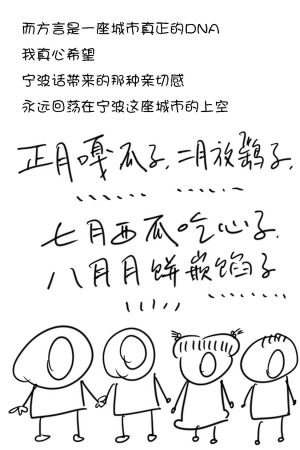 而方言是一座城市真正的DNA
我真心希望
宁波话带来的那种亲切感
永远回荡在宁波这座城市的上空
正月嘎瓜子，二月放鹞子，
……… ………
七月西瓜吃心子，
八月月饼嵌馅子
……… ………